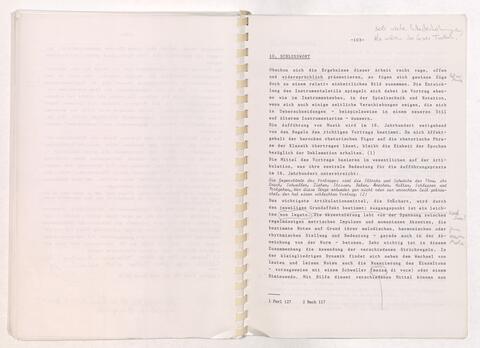 -103-
10. SCHLUSSWORT
Obschon sich die Ergebnisse dieser Arbeit recht vage, offen
und widersprüchlich präsentieren, so fügen sich gewisse Züge
doch zu einem relativ einheitlichen Bild zusammen. Die Entwick-
lung des Instrumentalstils spiegelt sich dabei im Vortrag eben-
so wie im Instrumentenbau, in der Spieltechnik und Notation,
wenn sich auch einige zeitliche Verschiebungen zeigen, die sich
in Ueberschneidungen - beispielsweise in einem neuen Stil
auf älterem Instrumentarium - äussern.
Die Aufführung von Musik wird im 18. Jahrhundert weitgehend
von den Regeln des richtigen Vortrags bestimmt. Da sich Affekt-
gehalt der barocken rhetorischen Figur auf die rhetorische Phrase
der Klassik überträgt, bleibt die Einheit der Epochen
bezüglich der Deklamation erhalten. (1)
Die Mittel des Vortrags basieren im wesentlichen auf der Arti-
kulation, was ihre zentrale Bedeutung für die Aufführungspraxis
im 18. Jahrhundert unterstreicht:
Die Gegenstände des Vortrages sind die Stärke und Schwäche der Töne, ihr
Druck, Schnellen, Ziehen, Stossen, Beben, Brechen, Halten, Schleppen und
Fortgehen. Wer diese Dinge entweder gar nicht oder zur unrechten Zeit gebrau-
chet, der hat einen schlechten Vortrag. (2)
Das wichtigste Artikulationsmittel, die Strichart, wird durch
den jeweiligen Grundaffekt bestimmt; Ausgangspunkt ist ein leich-
tes non legato. Die Akzentuierung lebt von der Spannung zwischen
regelmässigen metrischen Impulsen und momentanen Akzenten, die
bestimmte Noten auf Grund ihrer melodischen, harmonischen oder
rhythmischen Stellung und Bedeutung - gerade auch in der Ab-
weichung von der Norm - betonen. Sehr wichtig ist in diesem
Zusammenhang die Anwendung der verschiedenen Strichregeln. In
der kleingliedrigen Dynamik findet sich neben dem Wechsel von
lauten und leisen Noten auch die Nuancierung des Einzeltons
- vorzugsweise mit einem Schweller (messa di voce) oder einem
Diminuendo. Mit Hilfe dieser verschiedenen Mittel können nun
1 Forl 127 2 Bach 117